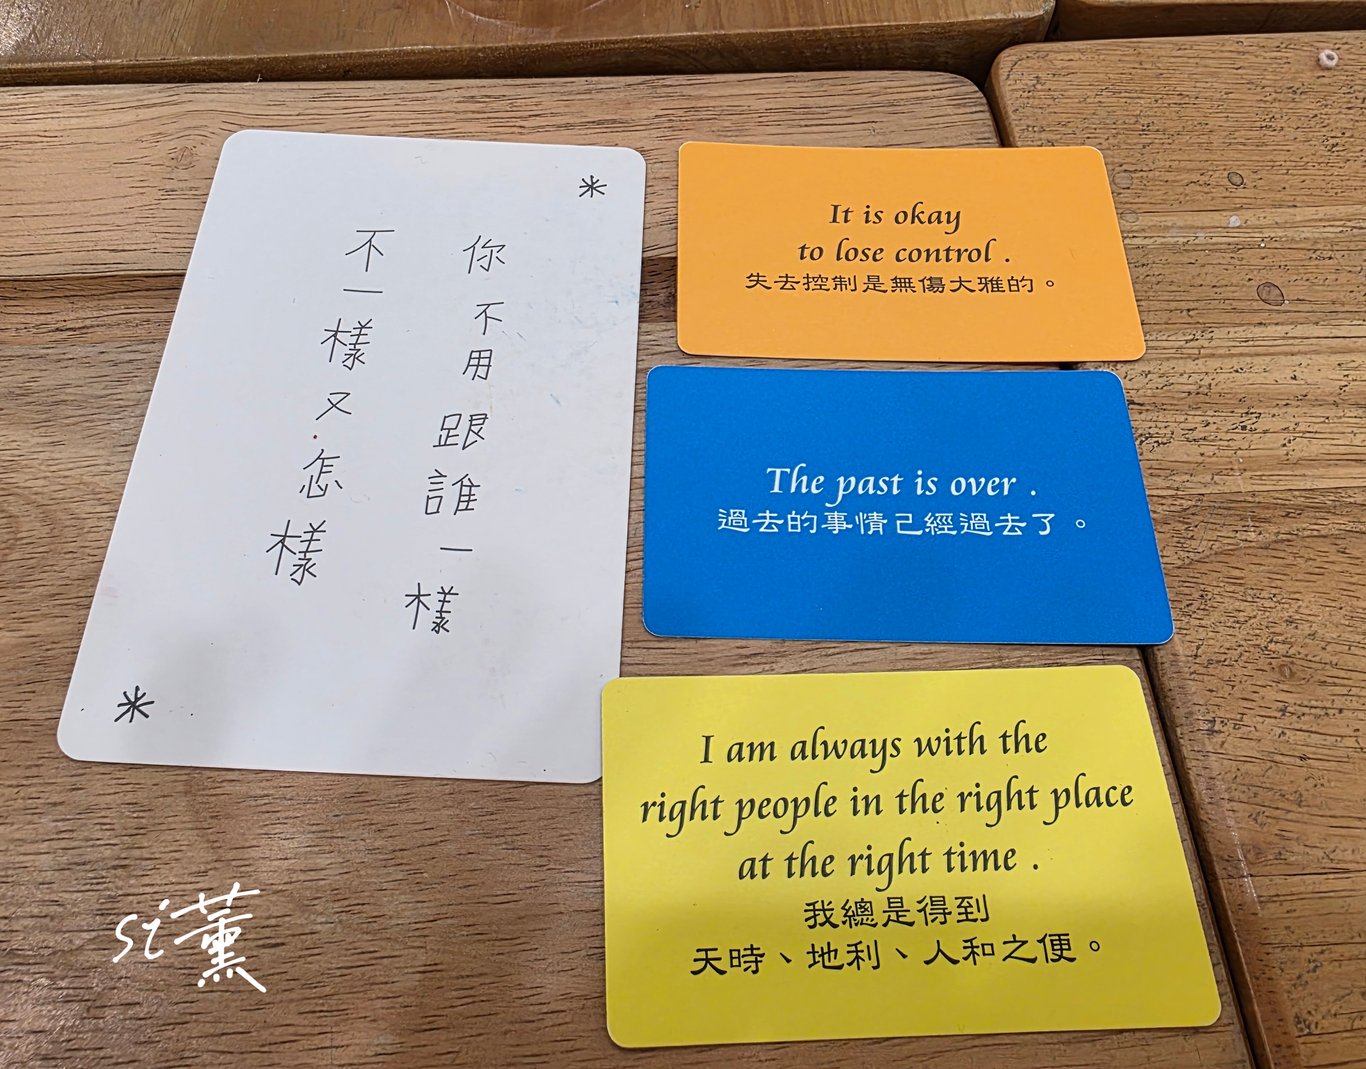 你不用跟誰一樣
不一樣又怎樣
It is okay
to lose control .
失去控制是無傷大雅的。
The past is over .
過去的事情己經過去了。
I am always with the
right people in the right place
at the right time .
我總是得到
天時、地利、人和之便。
si薰